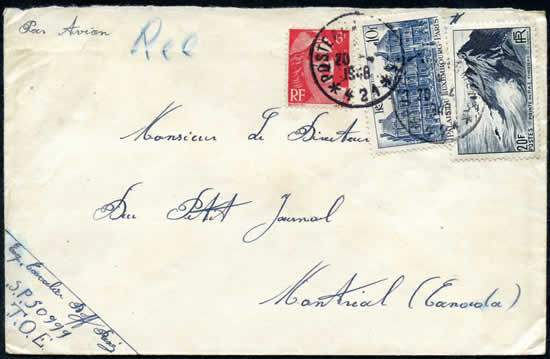 Par Avion
Rec
POSTE
20
1948
* 421 *
RF
10F
PALAIS DU LUXEMBOURG-PARIS
RF
20F
POSTES
Monsieur Le Directeur
Du Petit Journal
Montréal (Canada)
S.P. 50999
T.O.E.